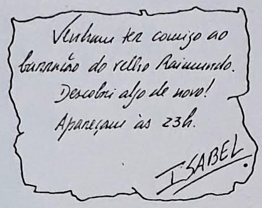 Venham ter comigo ao
barracão do velho Raimundo.
Descobri algo de novo!
Apareçam às 23h.
ISABEL.